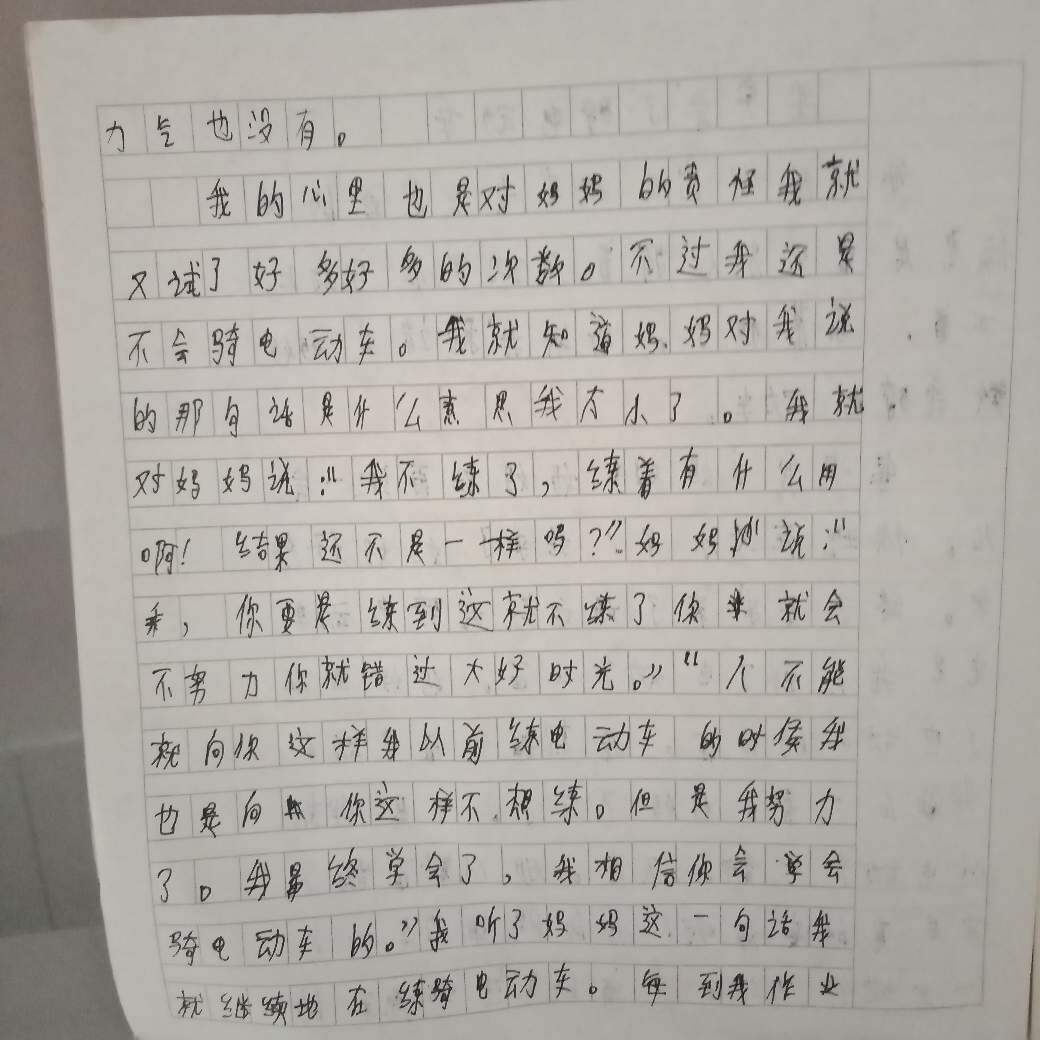 力气也没有。
我的心里也是对妈妈的责怪我就
又试了好多好多的次数。不过我还是
不会骑电动车。我就知道妈妈对我说
的那句话是什么意思我才小了。我就
对妈妈说：“我不练了，练着有什么用
啊！结果还不是一样吗？”妈妈说：“
，你要是练到这就不练了你就会
不努力你就错过大好时光。”“人不能
就向你这样我以前练电动车的时候我
也是向你这样不想练。但是我努力
了。我最终学会了，我相信你会学会
骑电动车的。”我听了妈妈这一句话我
就继续地在练骑电动车。每到我作业